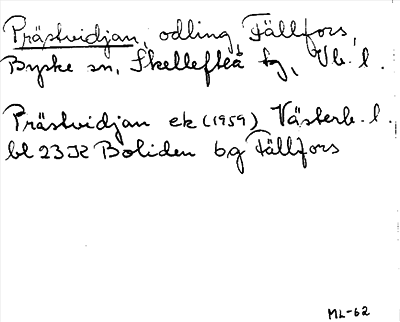 Prästvidjan, odling, Fällfors,
Byske sn, Skellefteå tg, Vb. l.
Prästvidjan ek (1959) Västerb. l.
bl 23 K Boliden b,g Fällfors
ML-62